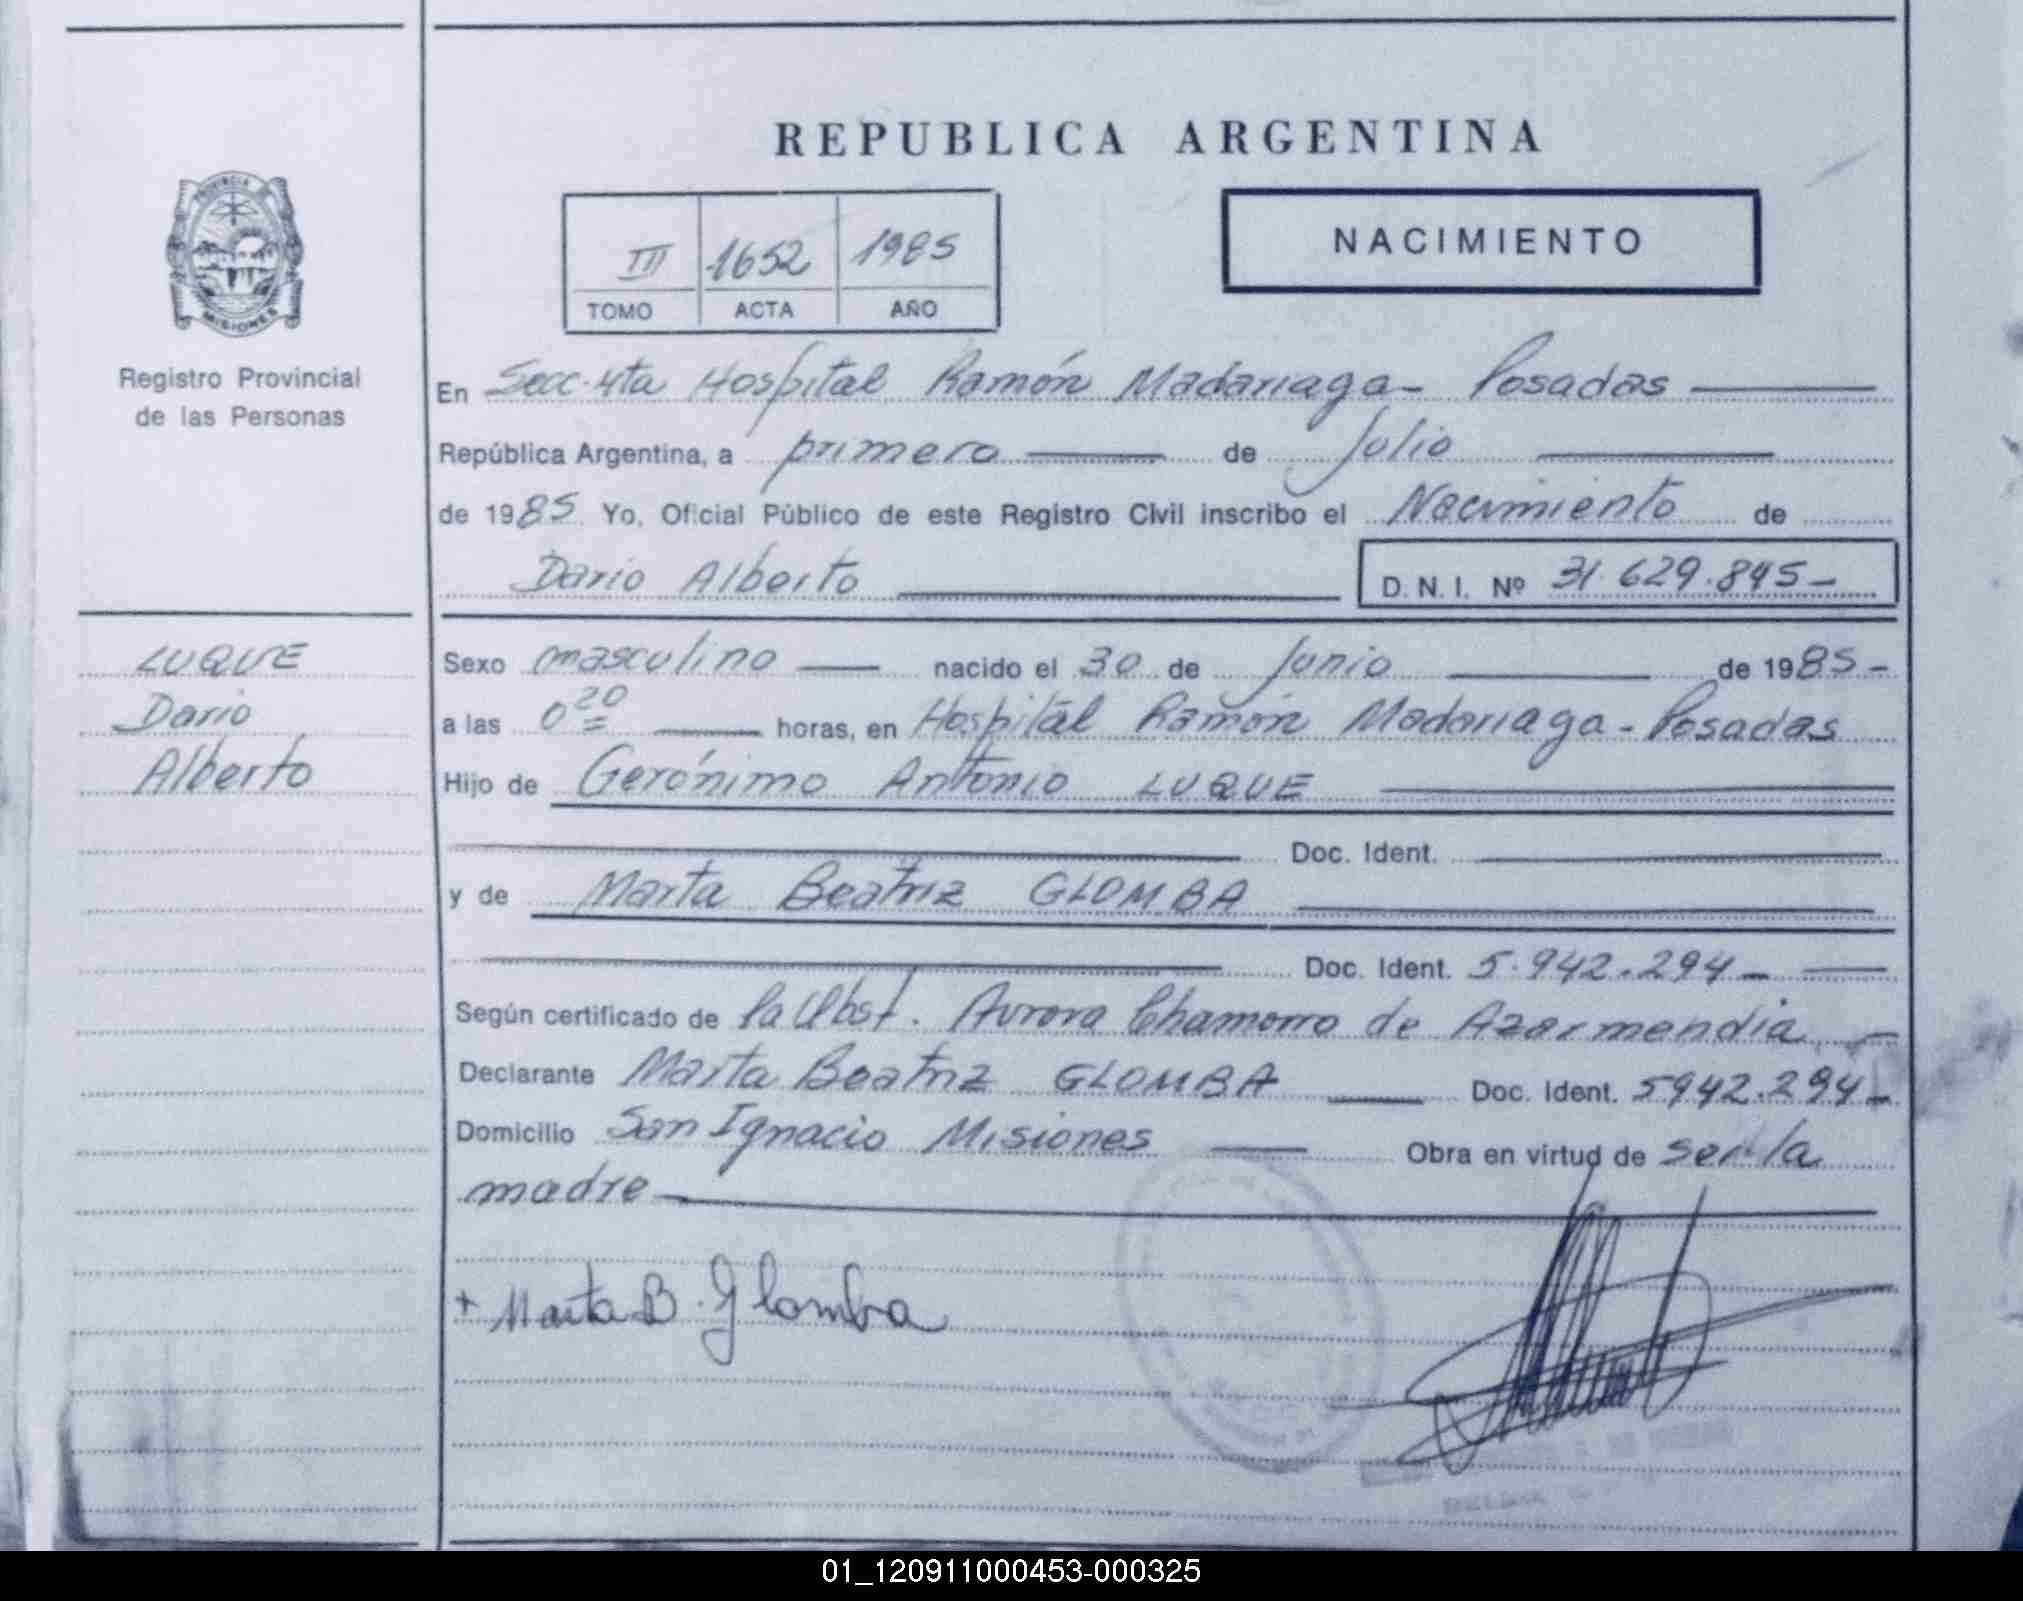 REPUBLICA ARGENTINA
PROVINCIA
MISIONES
Registro Provincial
de las Personas
III 1652 1985
TOMO ACTA AÑO
NACIMIENTO
En Secc. 4ta Hospital Ramón Madariaga - Posadas
República Argentina, a primero de Julio
de 1985 Yo, Oficial Público de este Registro Civil inscribo el Nacimiento de
Dario Alberto D.N.I. Nº 31.629.845-
LUQUE
Dario
Alberto
Sexo masculino nacido el 30 de Junio de 1985-
a las 0 20 horas, en Hospital Ramón Madariaga - Posadas
Hijo de Gerónimo Antonio LUQUE
Doc. Ident.
y de Marta Beatriz GLOMBA
Doc. Ident. 5.942.294-
Según certificado de la Obst. Aurora Chamorro de Azarmendia
Declarante Marta Beatriz GLOMBA Doc. Ident. 5942.294-
Domicilio San Ignacio Misiones Obra en virtud de ser la
madre
+ Marta B. Glomba
01_120911000453-000325